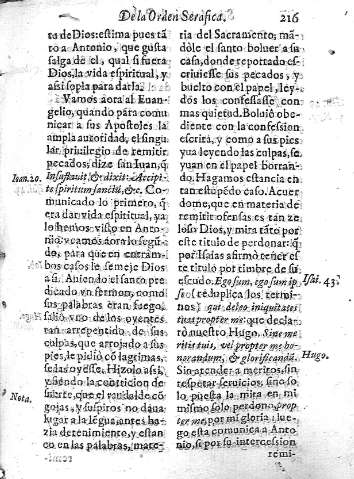 De la Orden Serafica.
216
to de Dios: estima pues tā
to a Antonio, que gusta
salga de el, qual si fuera
Dios, la vida espiritual, y
assi sopla para darla.
Vamos aora al Euan-
gelio, quando para comu
nicar a sus Apostoles la
ampla autoridad, el singu
lar priuilegio de remitir
pecados, dize san Iuan, q̄
Ioan. 20.
Insuflauit, & dixit: Accipi-
te spiritum sanctū, &c. Co-
municado lo primero, q̄
era dar vida espiritual, ya
lo hemos visto en Anto-
nio: veamos aora lo segū-
do, para que en entram-
bos casos le semeje Dios
a si. Auiendo el santo pre
dicado vn sermon, como
sus palabras eran fuego,
salió vno de los oyentes
tan arrepentido de sus
culpas, que arrojado a sus
pies, le pidiò cō lagrimas,
se las oyesse. Hizolo assi,
y siendo la contricion de
Nota.
suerte, que el raudal de cō
gojas, y suspiros no daua
lugar a la lēgua, antes ha-
zia detenimiento, y estan
co en las palabras, mate-
ria del Sacramento; mā-
dòle el santo boluer a su
casa, donde reportado es-
criuiesse sus pecados, y
buelto con el papel, leyē-
dòs los confessasse con
mas quietud. Boluiò obe-
diente con la confession
escrita, y como a sus pies
vua leyendo las culpas, se
yuan en el papel borran-
do. Hagamos estancia en
tan estupēdo caso. Acuer
dome, que en materia de
remitir ofensas es tan ze
loso Dios, y mira tāto por
este titulo de perdonar: q̄
por Isaias afirmò tener es
te titulo por timbre de su
escudo. Ego sum, ego sum ip
Isai. 43.
se (reduplica los termi-
nos) qui deleo iniquitates
tuas propter me: que decla-
rò nuestro Hugo. Sine me
ritis tuis, vel propter me ho-
Hugo.
norandum, & glorificandū.
Sin atender a meritos, sin
respetar seruicios, sino so-
lo puesta la mira en mi
mismo solo perdono, prop
ter me, por mi gloria: lue-
go esta comunica a Anto
nio, si por su intercession
remi-